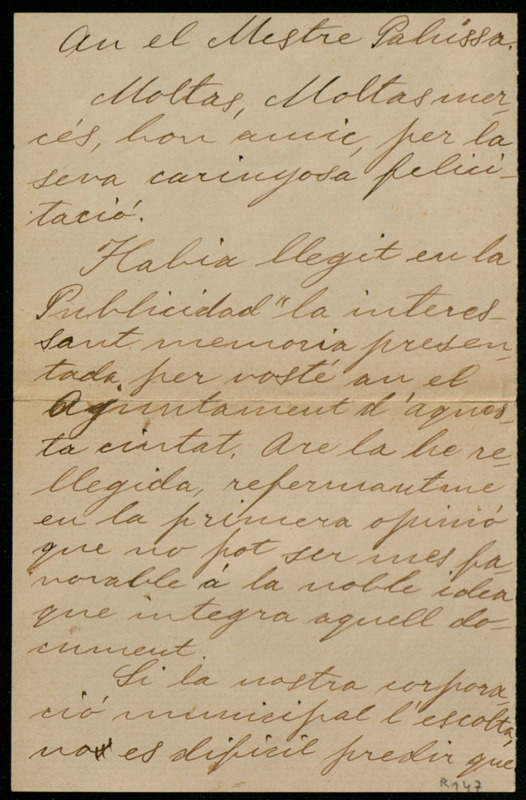 An el Mestre Pahissa.
Moltas, Moltas mer-
cés, bon amic, per la
seva carinyosa felici-
tació.
Habia llegit en la
Publicidad" la interes-
sant memoria presen-
tada per vosté an el
Ajuntament d'aques-
ta ciutat. Are la he re-
llegida, refermantme
en la primera opinió
que no pot ser mes fa-
vorable á la noble idea
que integra aquell do-
cument.
Si la nostra corpora-
ció municipal l'escolta,
no es dificil predir que
R947